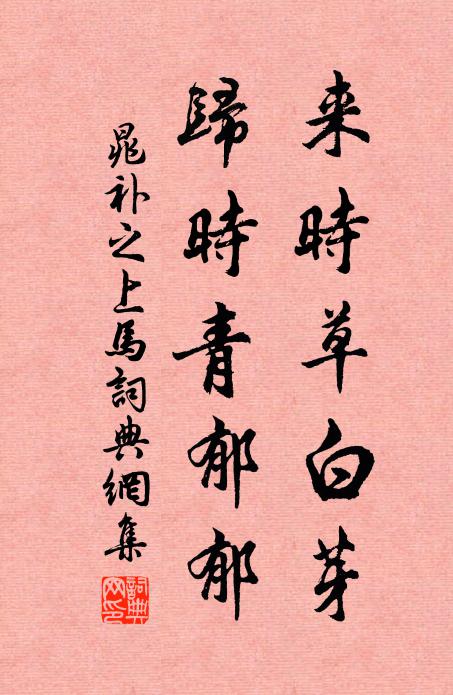 来時草白芽
歸時青郁郁
晁补之上馬詞典網集
詞典網印